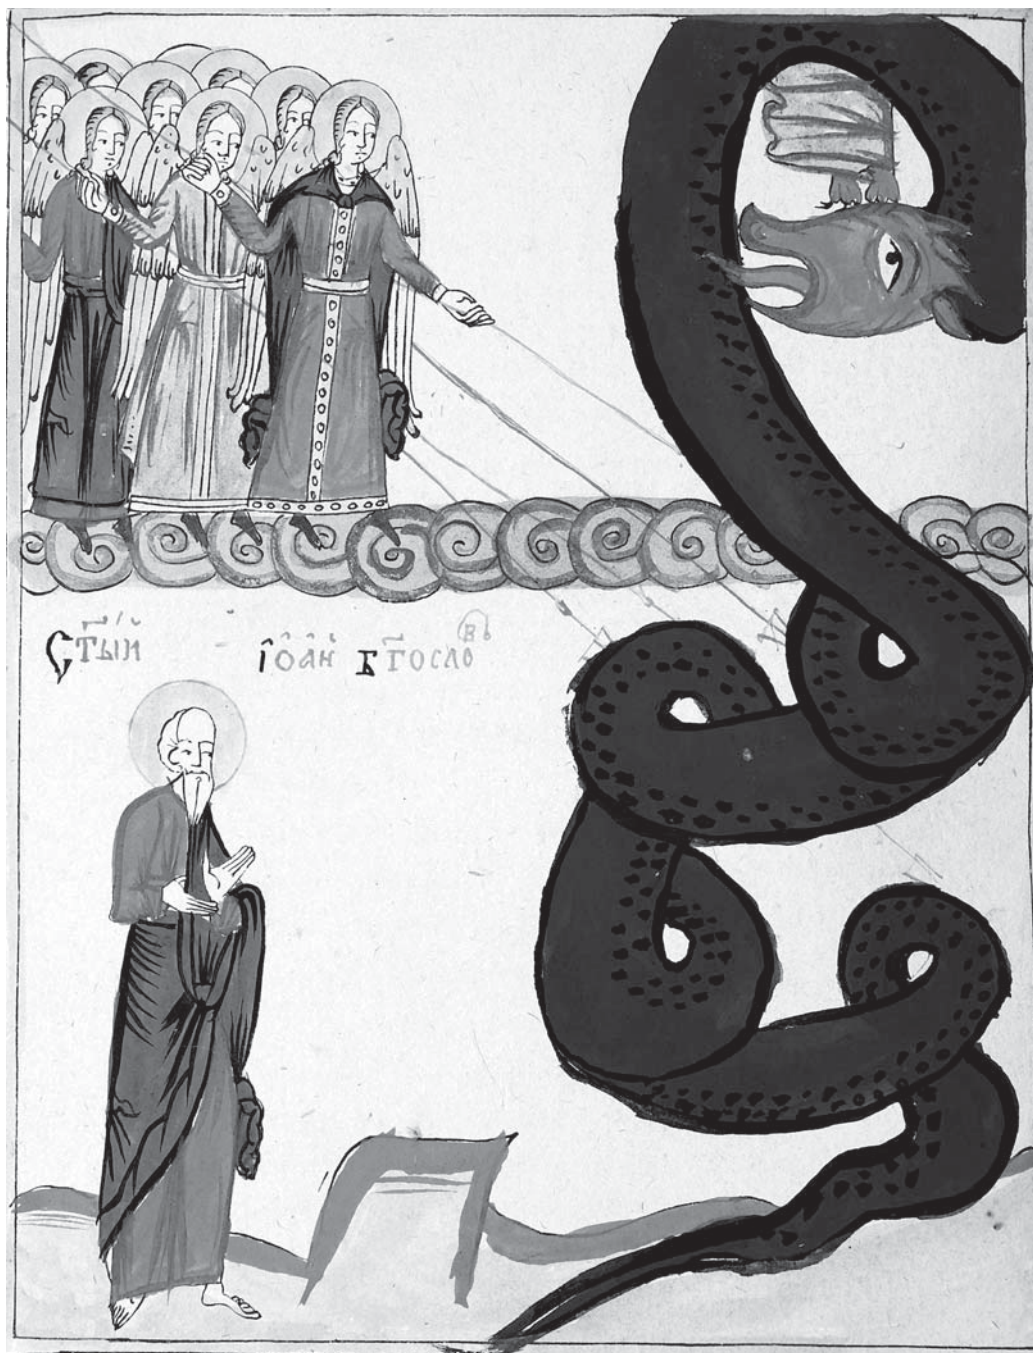 Ст҃ый Іѡа́н Бг҃осло́в